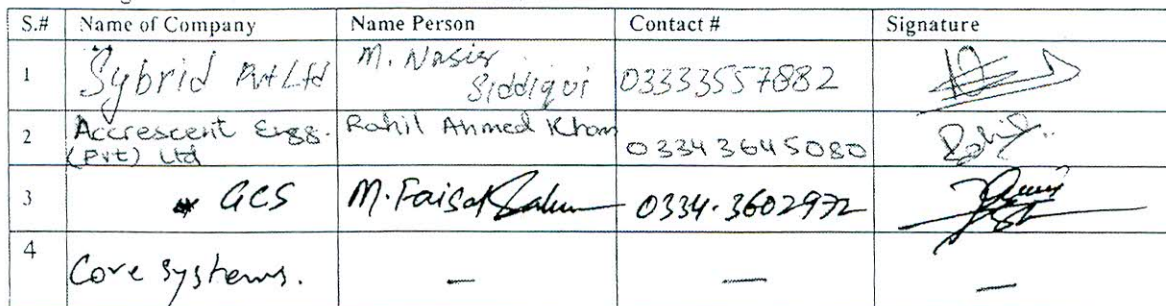 S.# Name of Company Name Person Contact # Signature
1 Sybrid Pvt Ltd M. Nasir Siddiqui 03333557882
2 Accrescent Engg. (Pvt) Ltd Rahil Ahmed Khan 03343645080 Rahil..
3 GCS M. Faisal 0334-3602972
4 Core Systems. — — —